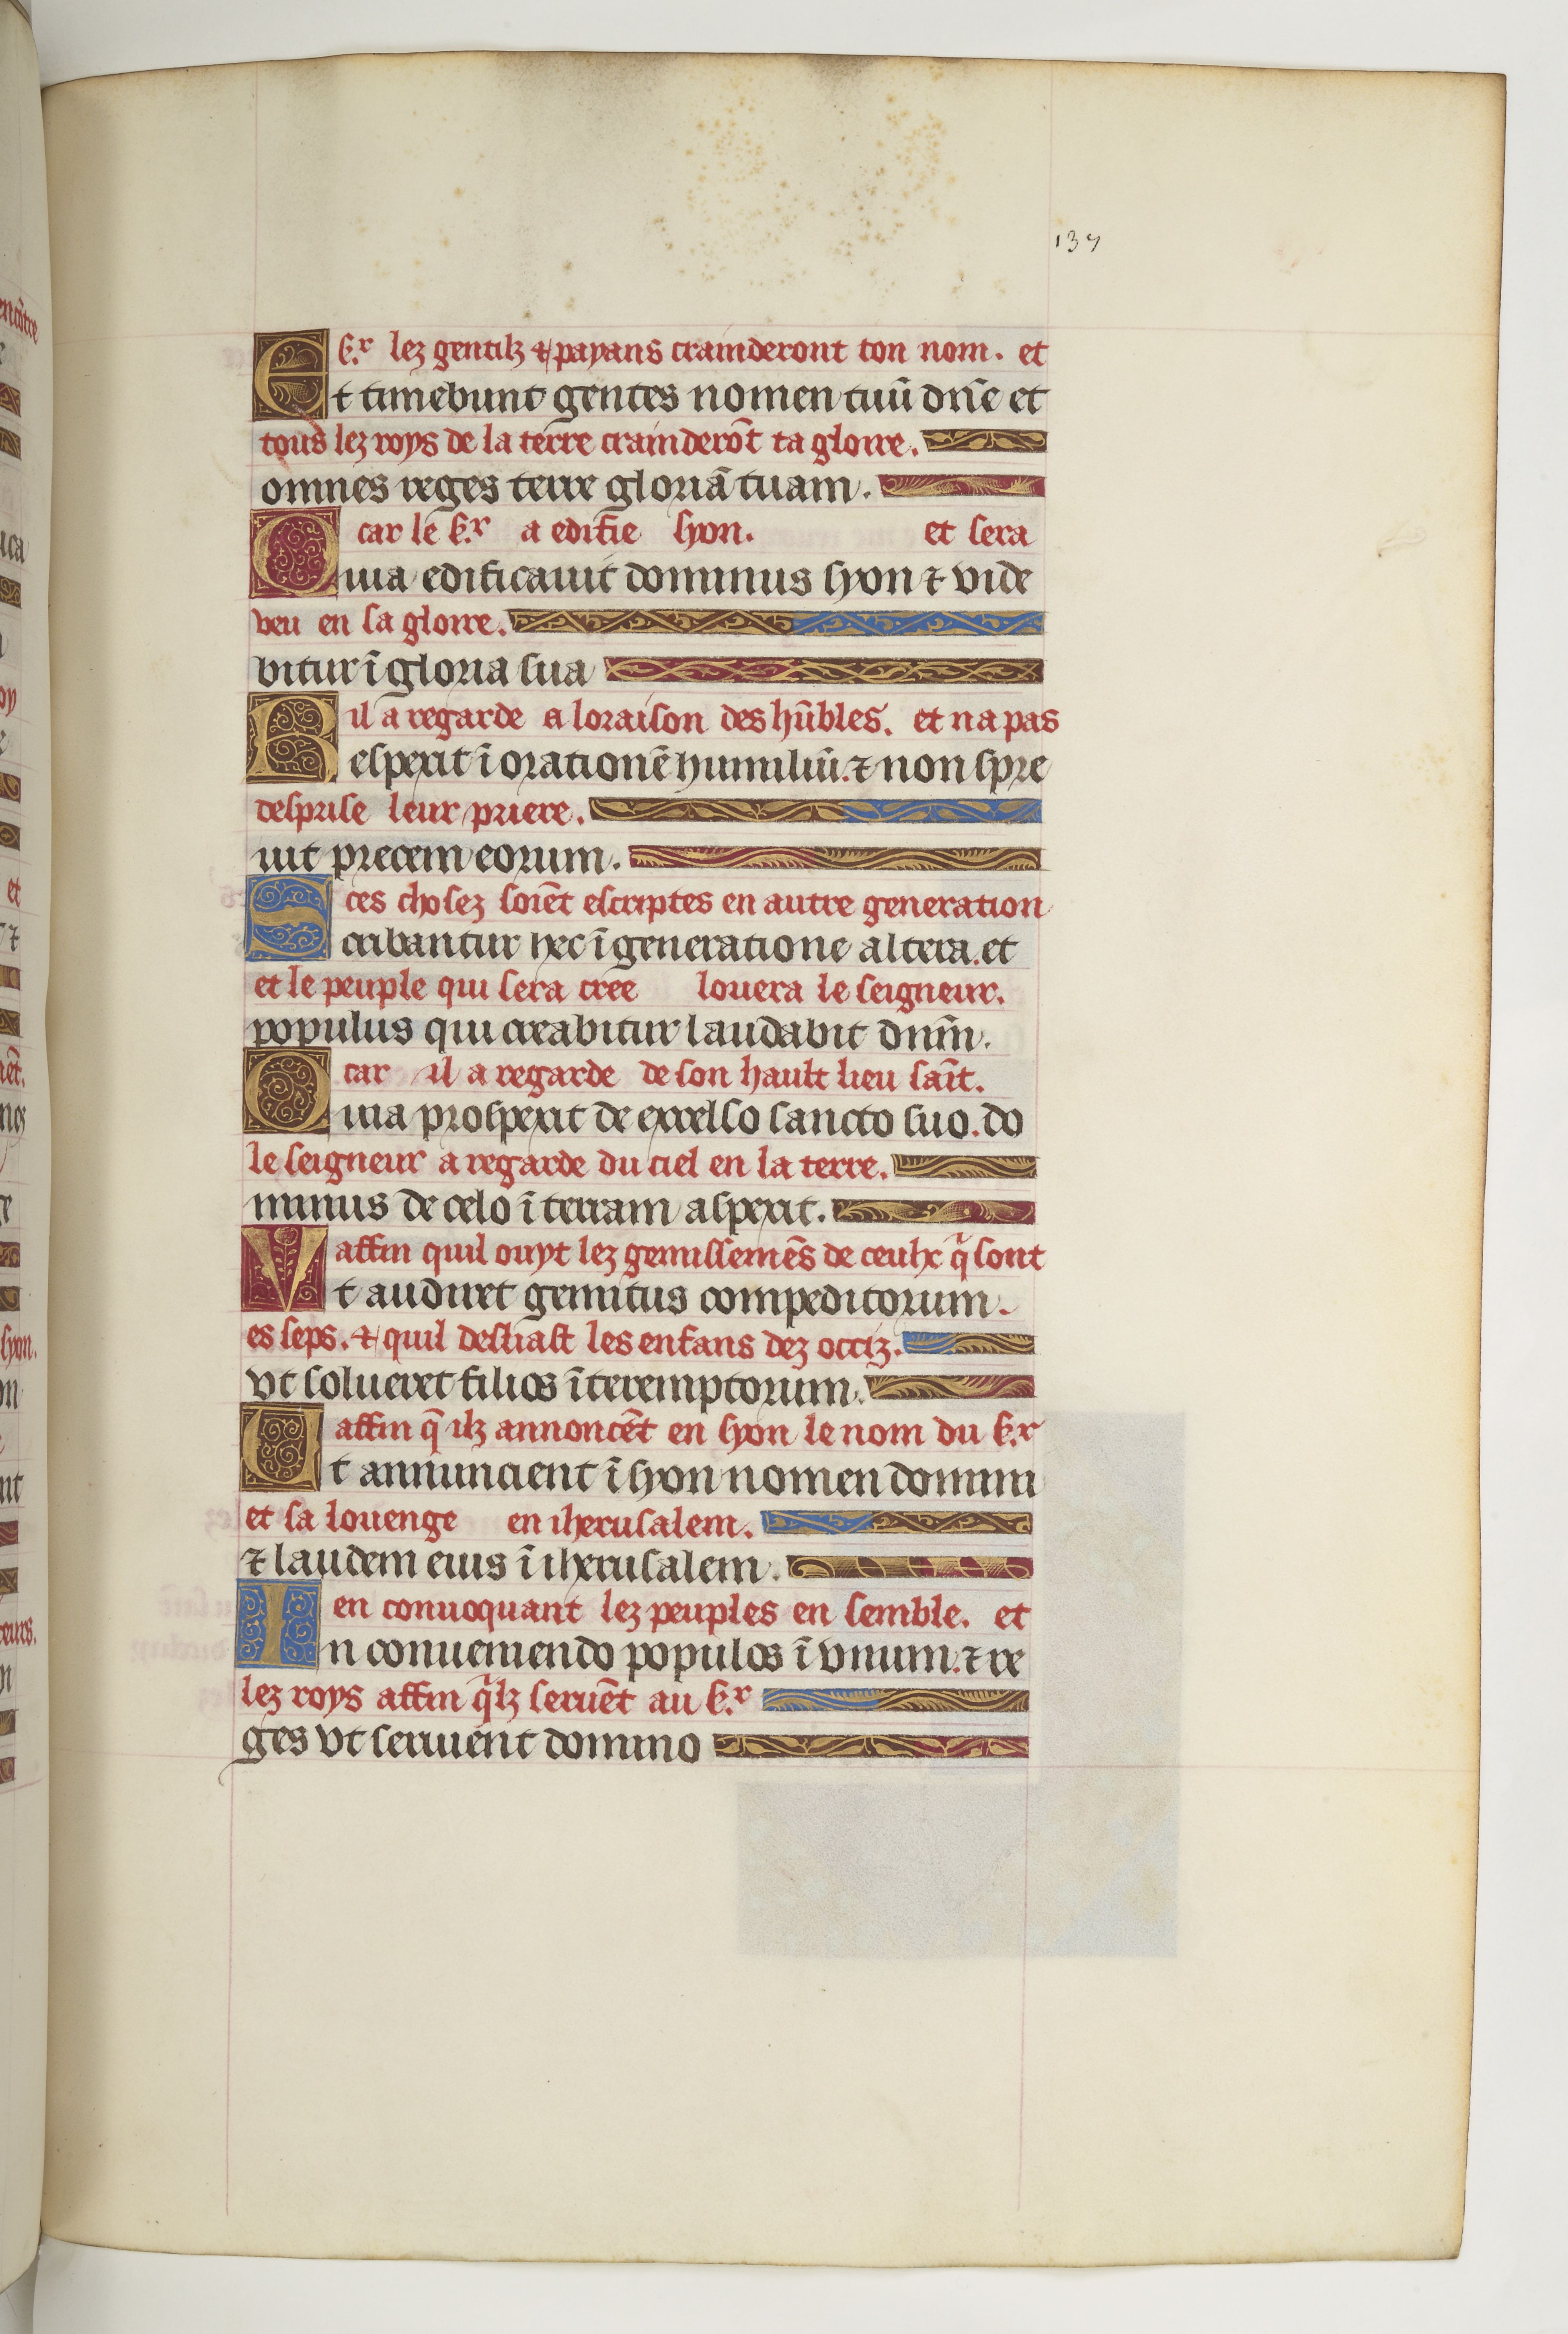 137
s.r lez gentilz & payans crainderont ton nom. et
Et timebunt gentes nomen tuū dn̄e et
tous lez roys de la terre crainderōt ta gloire.
omnes reges terre gloriā tuam.
car le s.r a edifie syon. et sera
Quia edificauit dominus syon ⁊ vide
veu en sa gloire.
bitur ī gloria sua
il a regarde a loraison des hūbles. et na pas
Respexit ī orationē humiliū. ⁊ non spre
desprise leur priere.
uit precem eorum.
ces chosez soiēt escriptes en autre generation
Scribantur hec ī generatione altera. et
et le peuple qui sera cree louera le seigneur.
populus qui creabitur laudabit dn̄m.
car il a regarde de son hault lieu saīt.
Quia prospexit de excelso sancto suo. do
le seigneur a regarde du ciel en la terre.
minus de celo ī terram aspexit.
affin quil ouyt lez gemissemēs de ceulx q̄ sont
Vt audiret gemitus compeditorum.
es seps. & quil desliast les enfans dez occiz.
vt solueret filios īteremptorum.
affin q̄ ilz annoncēt en syon le nom du s.r
Ut annuncient ī syon nomen domini
et sa louenge en iherusalem.
⁊ laudem eius ī iherusalem.
en conuoquant lez peuples en semble. et
In conueniendo populos ī vnum. ⁊ re
lez roys affin q̄lz seruēt au s.r
ges vt seruient domino